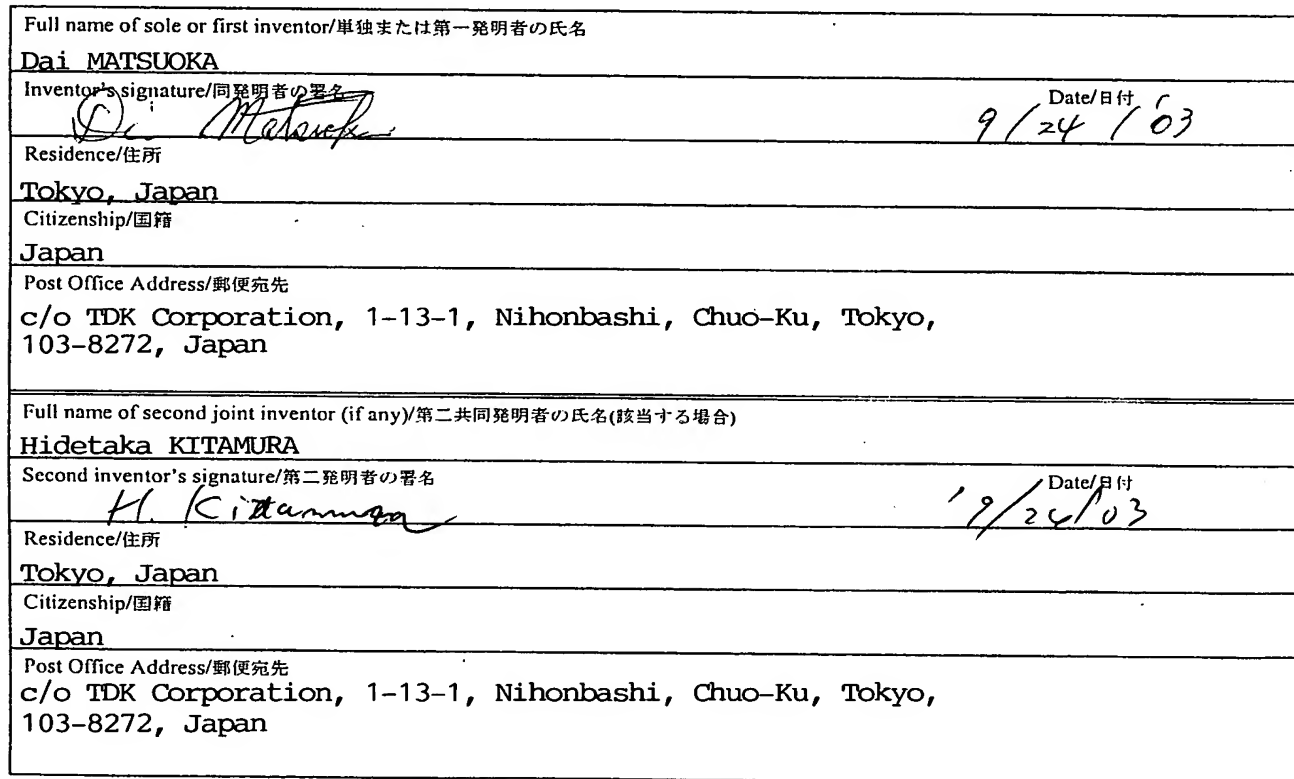 Full name of sole or first inventor/単独または第一発明者の氏名
Dai MATSUOKA
Inventor's signature/同発明者の署名 Date/日付
Dai Matsuoka 9/24/'03
Residence/住所
Tokyo, Japan
Citizenship/国籍
Japan
Post Office Address/郵便宛先
c/o TDK Corporation, 1-13-1, Nihonbashi, Chuo-Ku, Tokyo,
103-8272, Japan
Full name of second joint inventor (if any)/第二共同発明者の氏名(該当する場合)
Hidetaka KITAMURA
Second inventor's signature/第二発明者の署名 Date/日付
H. Kitamura 9/24/'03
Residence/住所
Tokyo, Japan
Citizenship/国籍
Japan
Post Office Address/郵便宛先
c/o TDK Corporation, 1-13-1, Nihonbashi, Chuo-Ku, Tokyo,
103-8272, Japan